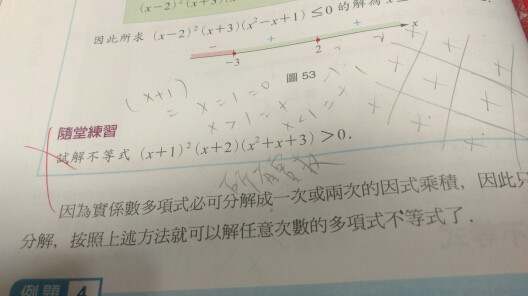 (x-2)²(x+3)(x
因此所求 (x-2)²(x+3)(x²-x+1)≤0 的解為 x≤
- + +
-3 2 x
圖 53
(x+1)
= x=1=0
x>1=x
x<1=x
隨堂練習
試解不等式 (x+1)²(x+2)(x²+x+3)>0.
因為實係數多項式必可分解成一次或兩次的因式乘積，因此只
分解，按照上述方法就可以解任意次數的多項式不等式了.
例題 4